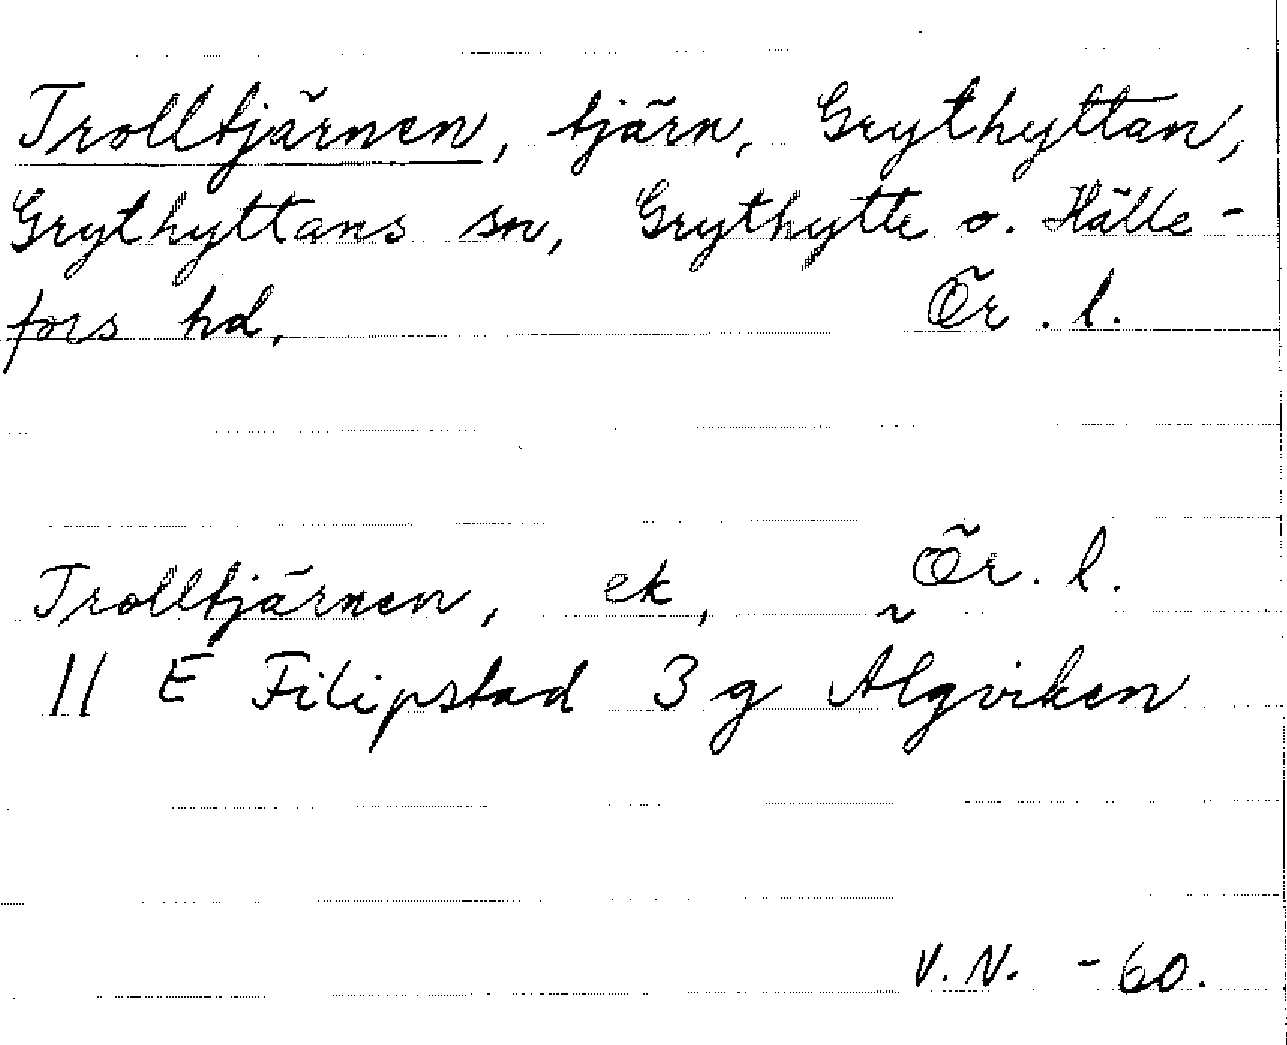 Trolltjärnen, tjärn, Grythyttan,
Grythyttans sn, Grythytte o. Hälle-
fors hd, Ör. l.
Trolltjärnen, ek, Ör. l.
11 E Filipstad 3 g Älgviken
V. N. -60.